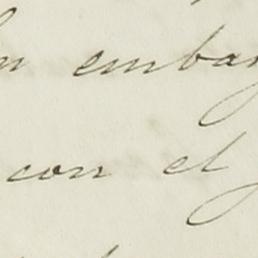 embar
con el